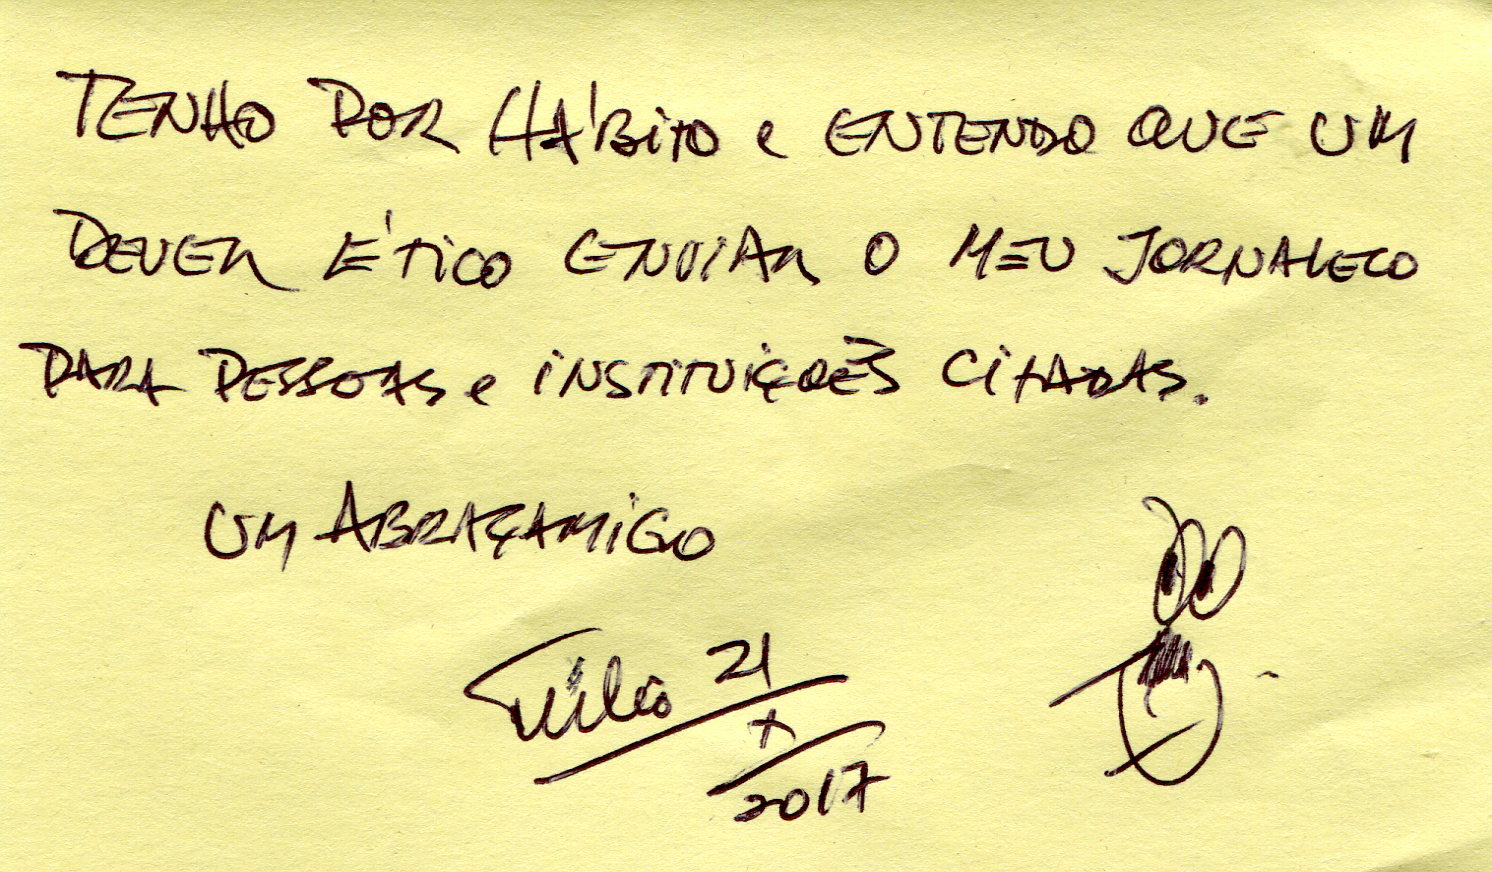 TENHO POR HÁBITO e ENTENDO QUE UM
DEVER ÉTICO ENVIAR O MEU JORNALECO
PARA PESSOAS e INSTITUIÇÕES CITADAS.
UM ABRAÇAMIGO
21
X
2017